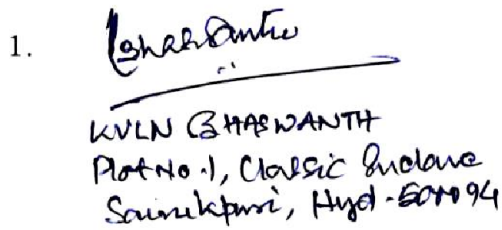 1.
KVLN BHASWANTH
Plot No.1, Classic Enclave
Sainikpuri, Hyd-500094